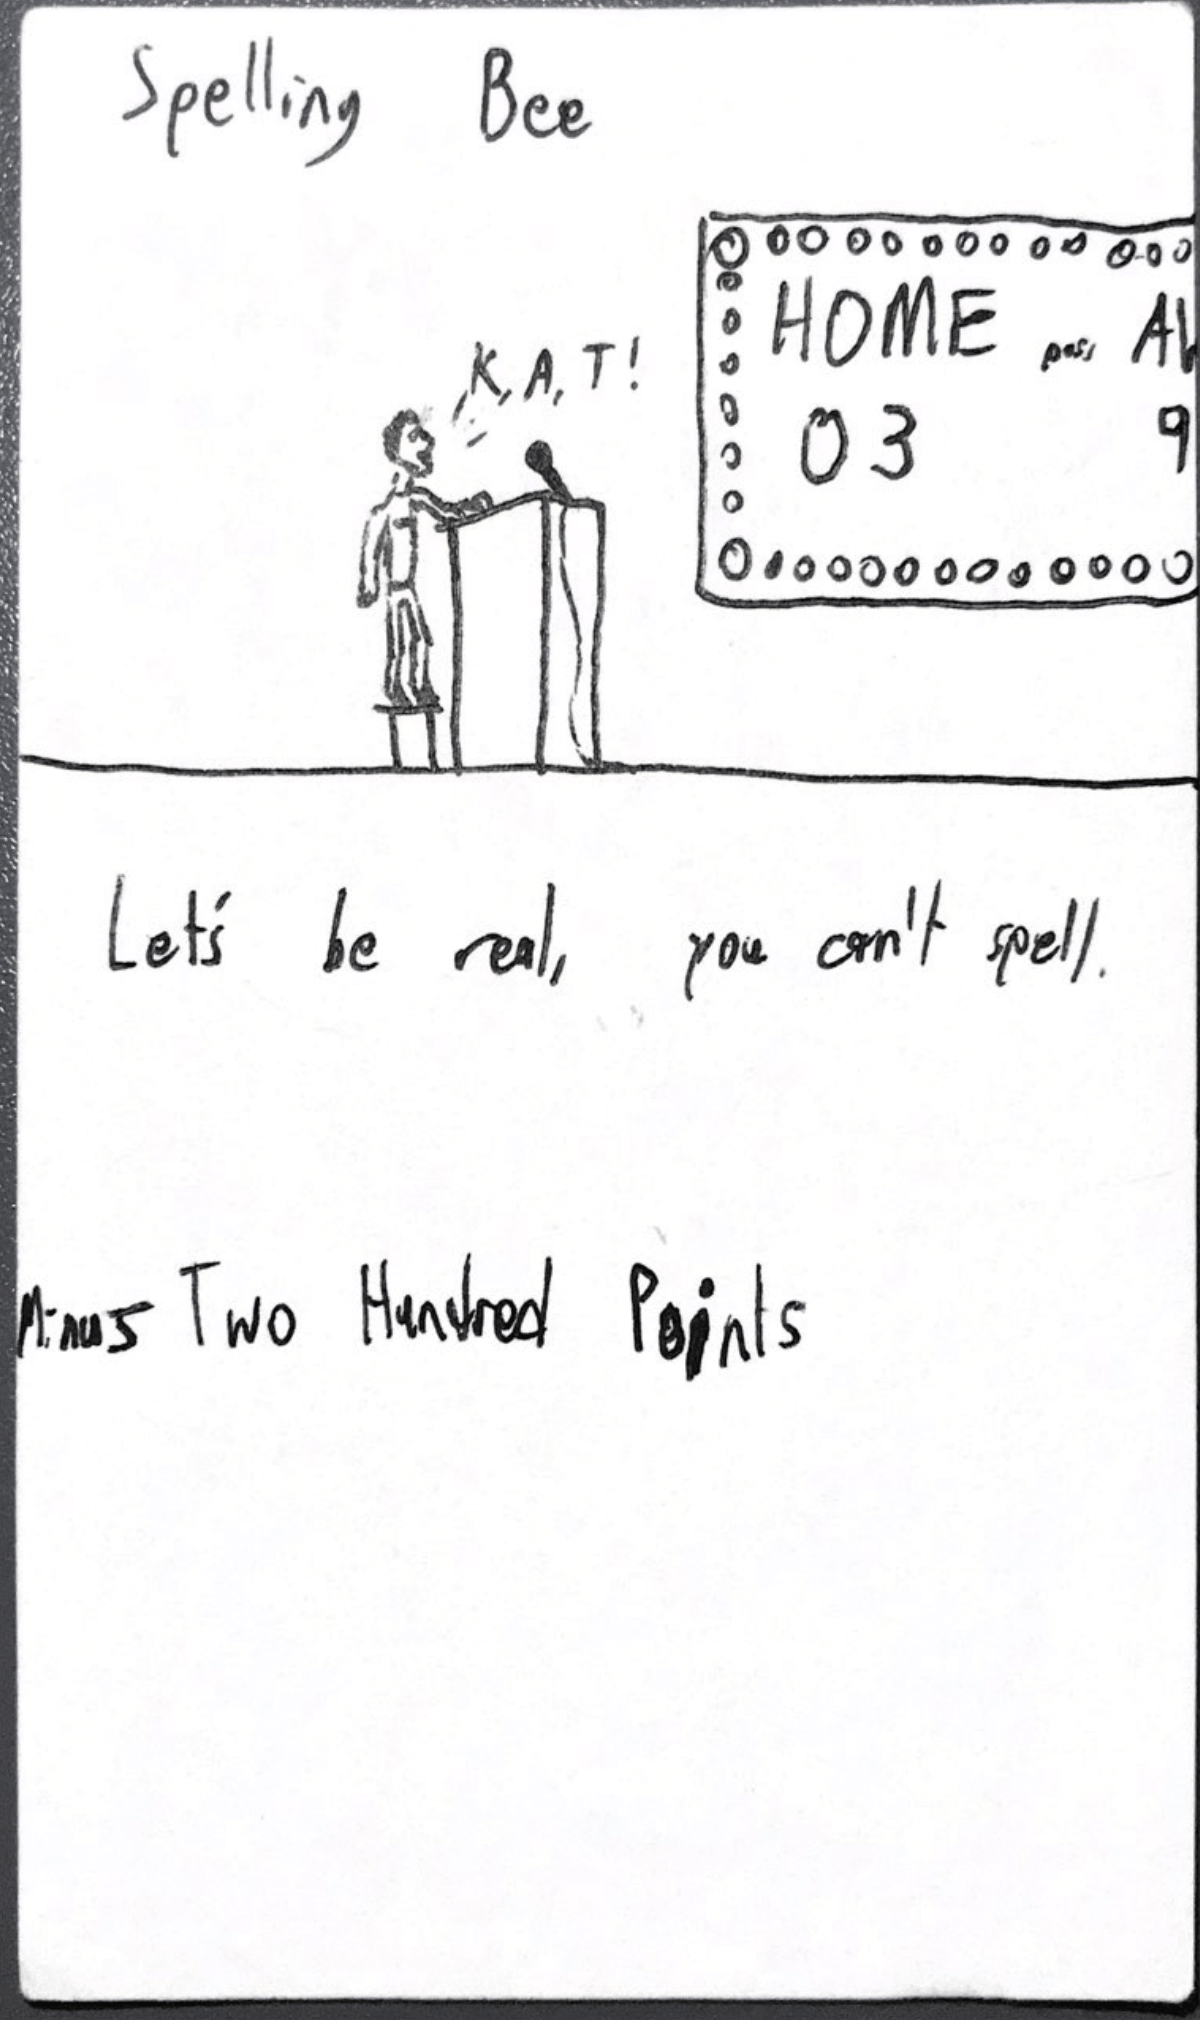 Spelling Bee
K, A, T!
HOME poss AW
03 9
Let's be real, you can't spell.
Minus Two Hundred Points